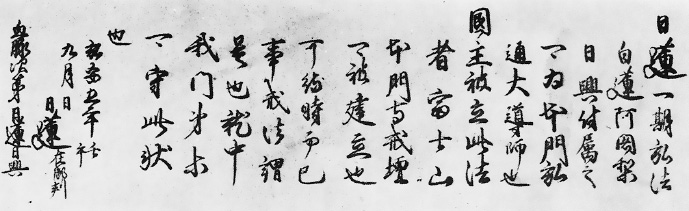 日蓮一期弘法
白蓮阿闍梨
日興付属之
可為本門弘
通大導師也
國主被立此法
者冨士山
本門寺戒壇
可被建立也
可待時而已
事戒法謂
是也就中
我門弟等
可守此状
也
弘安五年壬午
九月日
日蓮在御判
血脈次第日蓮日興